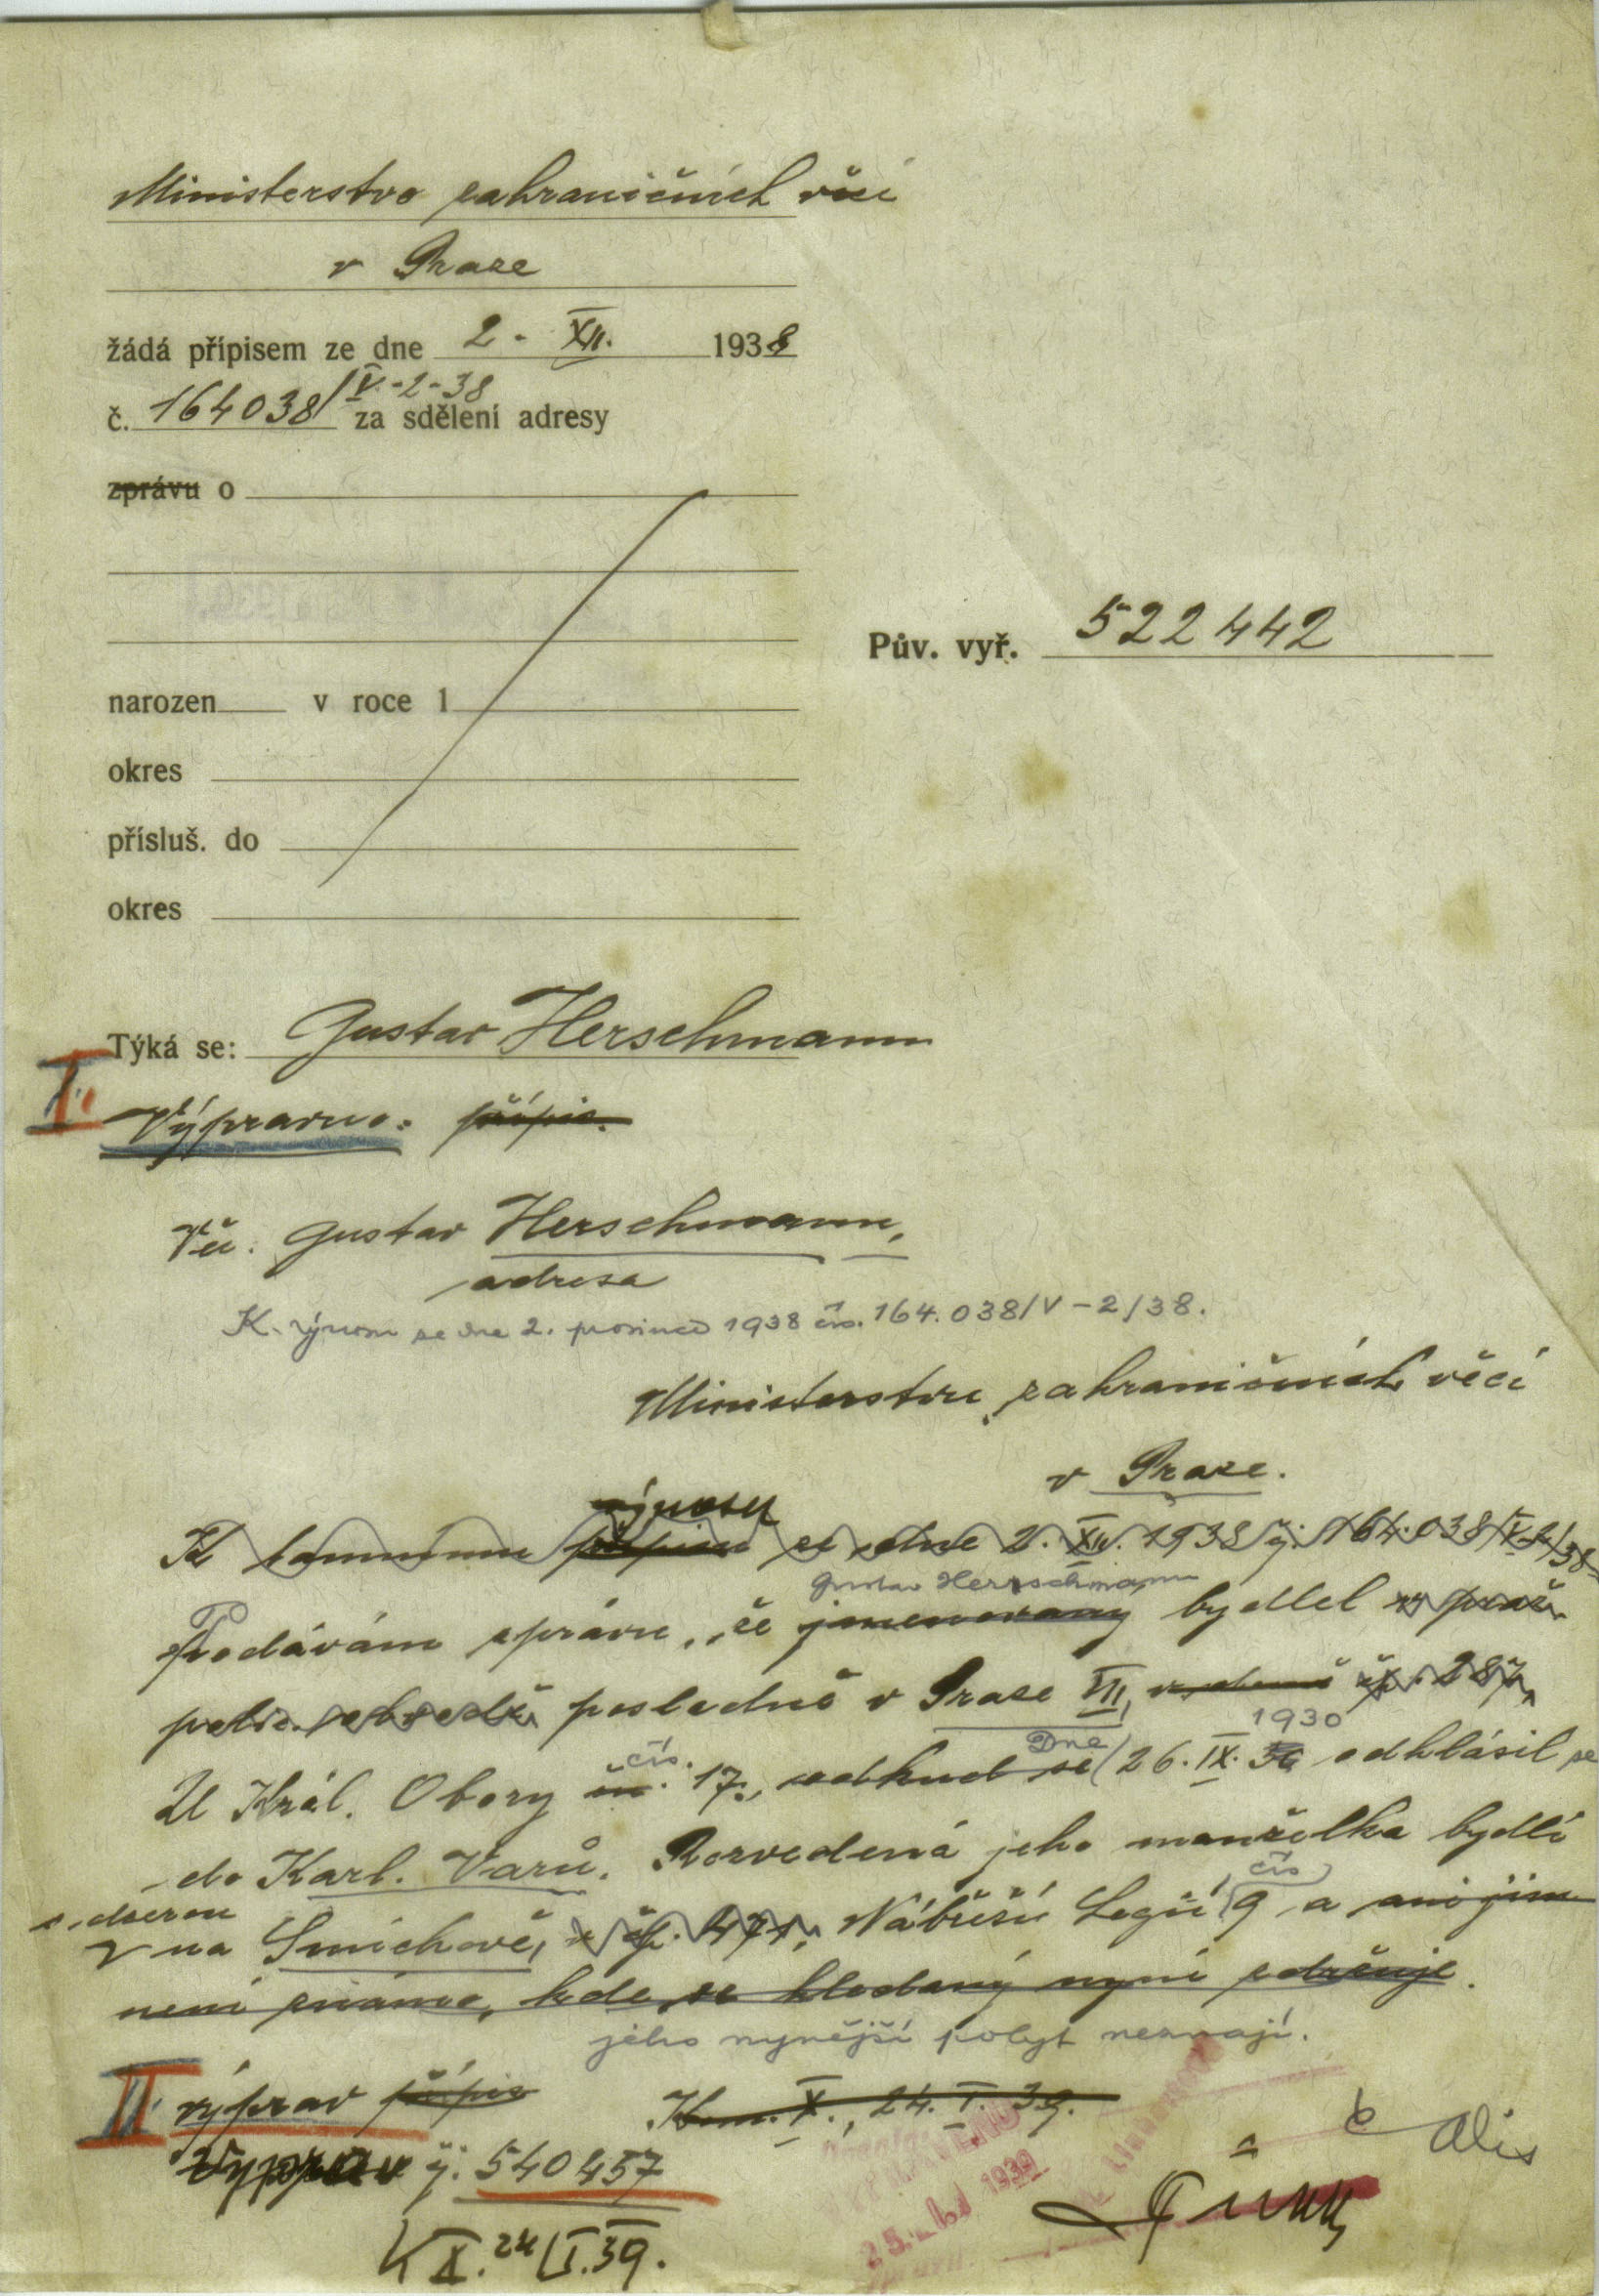 Ministerstvo zahraničních věcí
v Praze
žádá přípisem ze dne 2. XII. 1938
č. 164038/V.-2-38 za sdělení adresy
zprávu o
Pův. vyř. 522442
narozen v roce 1
okres
přísluš. do
okres
Týká se: Gustav Herschmann
I. Výpravno: přípis.
Věc: Gustav Herschmann,
adresa
K výnosu ze dne 2. prosince 1938 čís. 164.038/V-2/38.
Ministerstvu zahraničních věcí
v Praze.
výnosu
K tamnímu přípisu ze dne 2. XII. 1938 čj. 164.038/V-2/38
Gustav Herrschmann
Podávám zprávu, že jmenovaný bydlel v praž.
polic. obvodě posledně v Praze VII, v domě čp. 287,
čís. Dne 1930
U Král. Obory čís. 17., odkud se 26. IX. 30 odhlásil se
do Karl. Varů. Rozvedená jeho manželka bydlí
s dcerou čís
na Smíchově, v čp. 471, Nábřeží Legií 9 a ani jim
není známo, kde se hledaný nyní zdržuje.
jeho nynější pobyt neznají.
II výprav přípis Kom. X., 24. I. 39.
Výprav čj. 540457
K X. 24/I. 39.
25. I. 1939